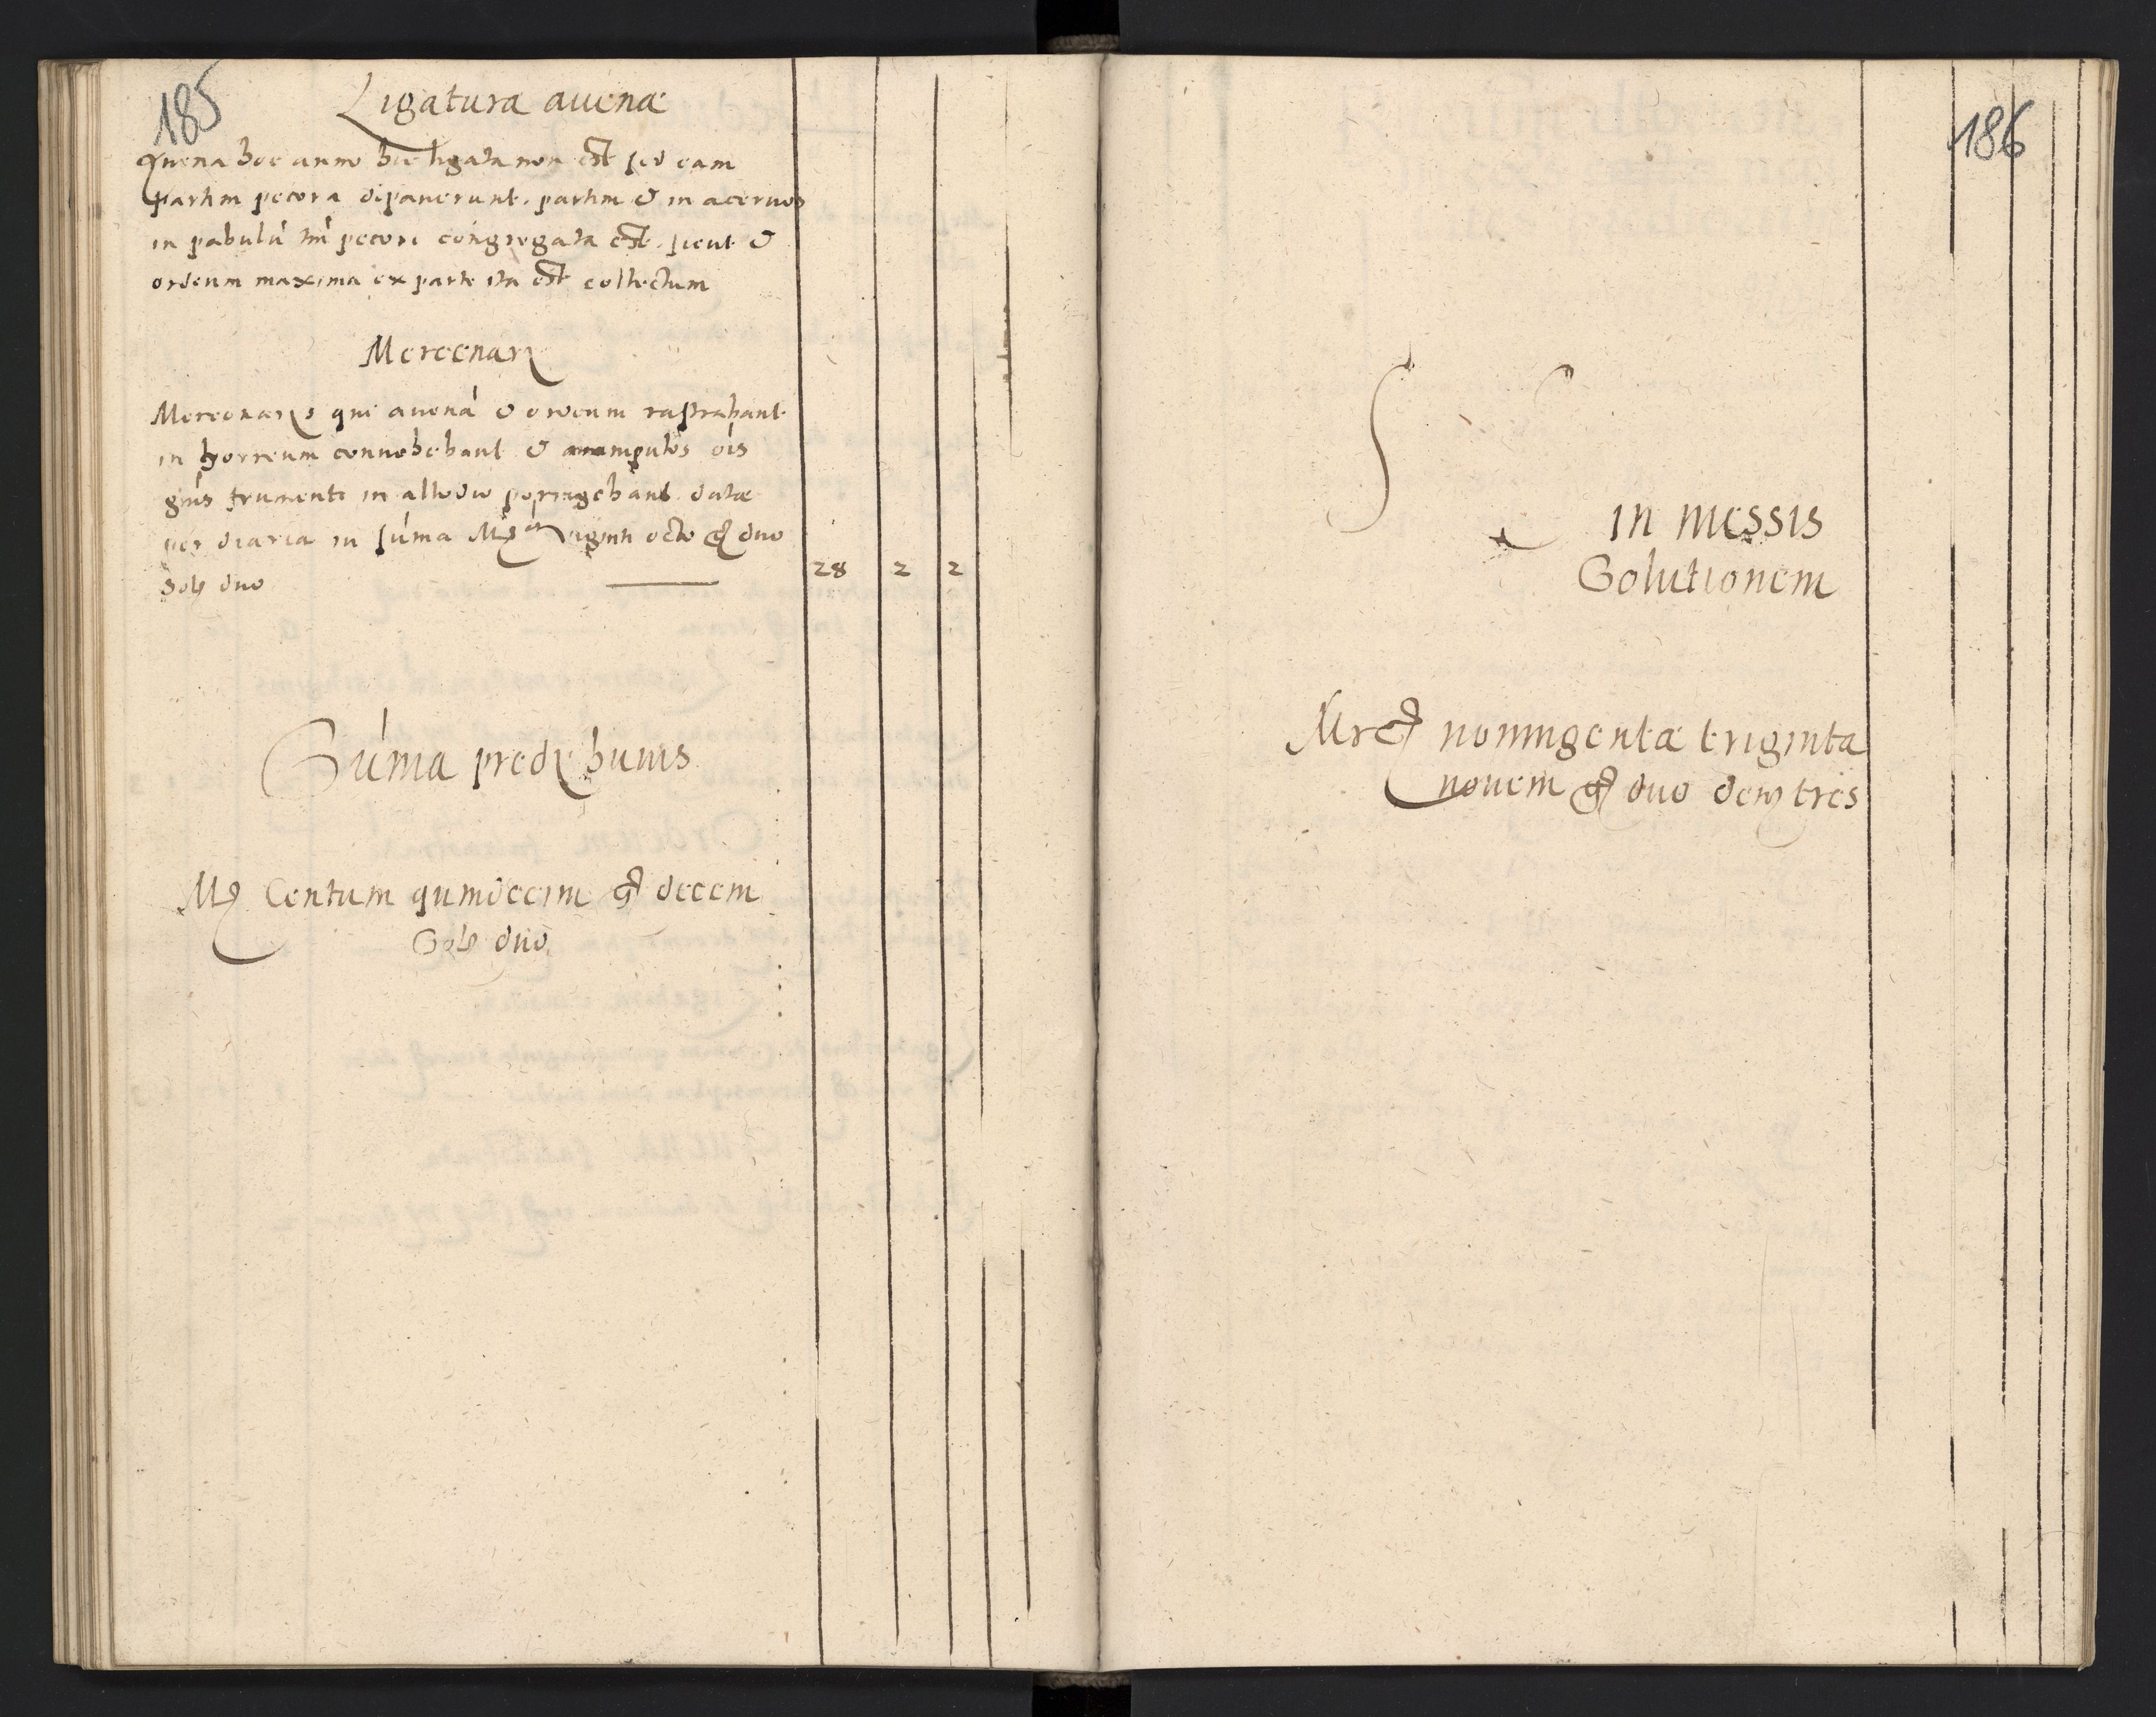 185
Ligatura auenæ
Auena hoc anno hic ligata non est sed eam
partim pecora dipauerunt. partim & in aceruos
in pabulú tm̄ pecori congregata est. sicut &
ordeum maxima ex parte ita est collectum
Mercenarӡ
Mercenarӡs qui auená & ordeum rastrabant
in horreum conuehebant & manipulos oīs
gn̄is frumenti in allodio porrigebant. datæ
per diaria in súma Mӡ viginti octo gͬ duo
Solӡ duo 28 2 2
Súma predӡ huius
Mӡ Centum quindecim gͬ decem
Solӡ duo
186
in messis
Solutionem
Mrcӡ noningentæ triginta
nouem gͬ duo denӡ tres